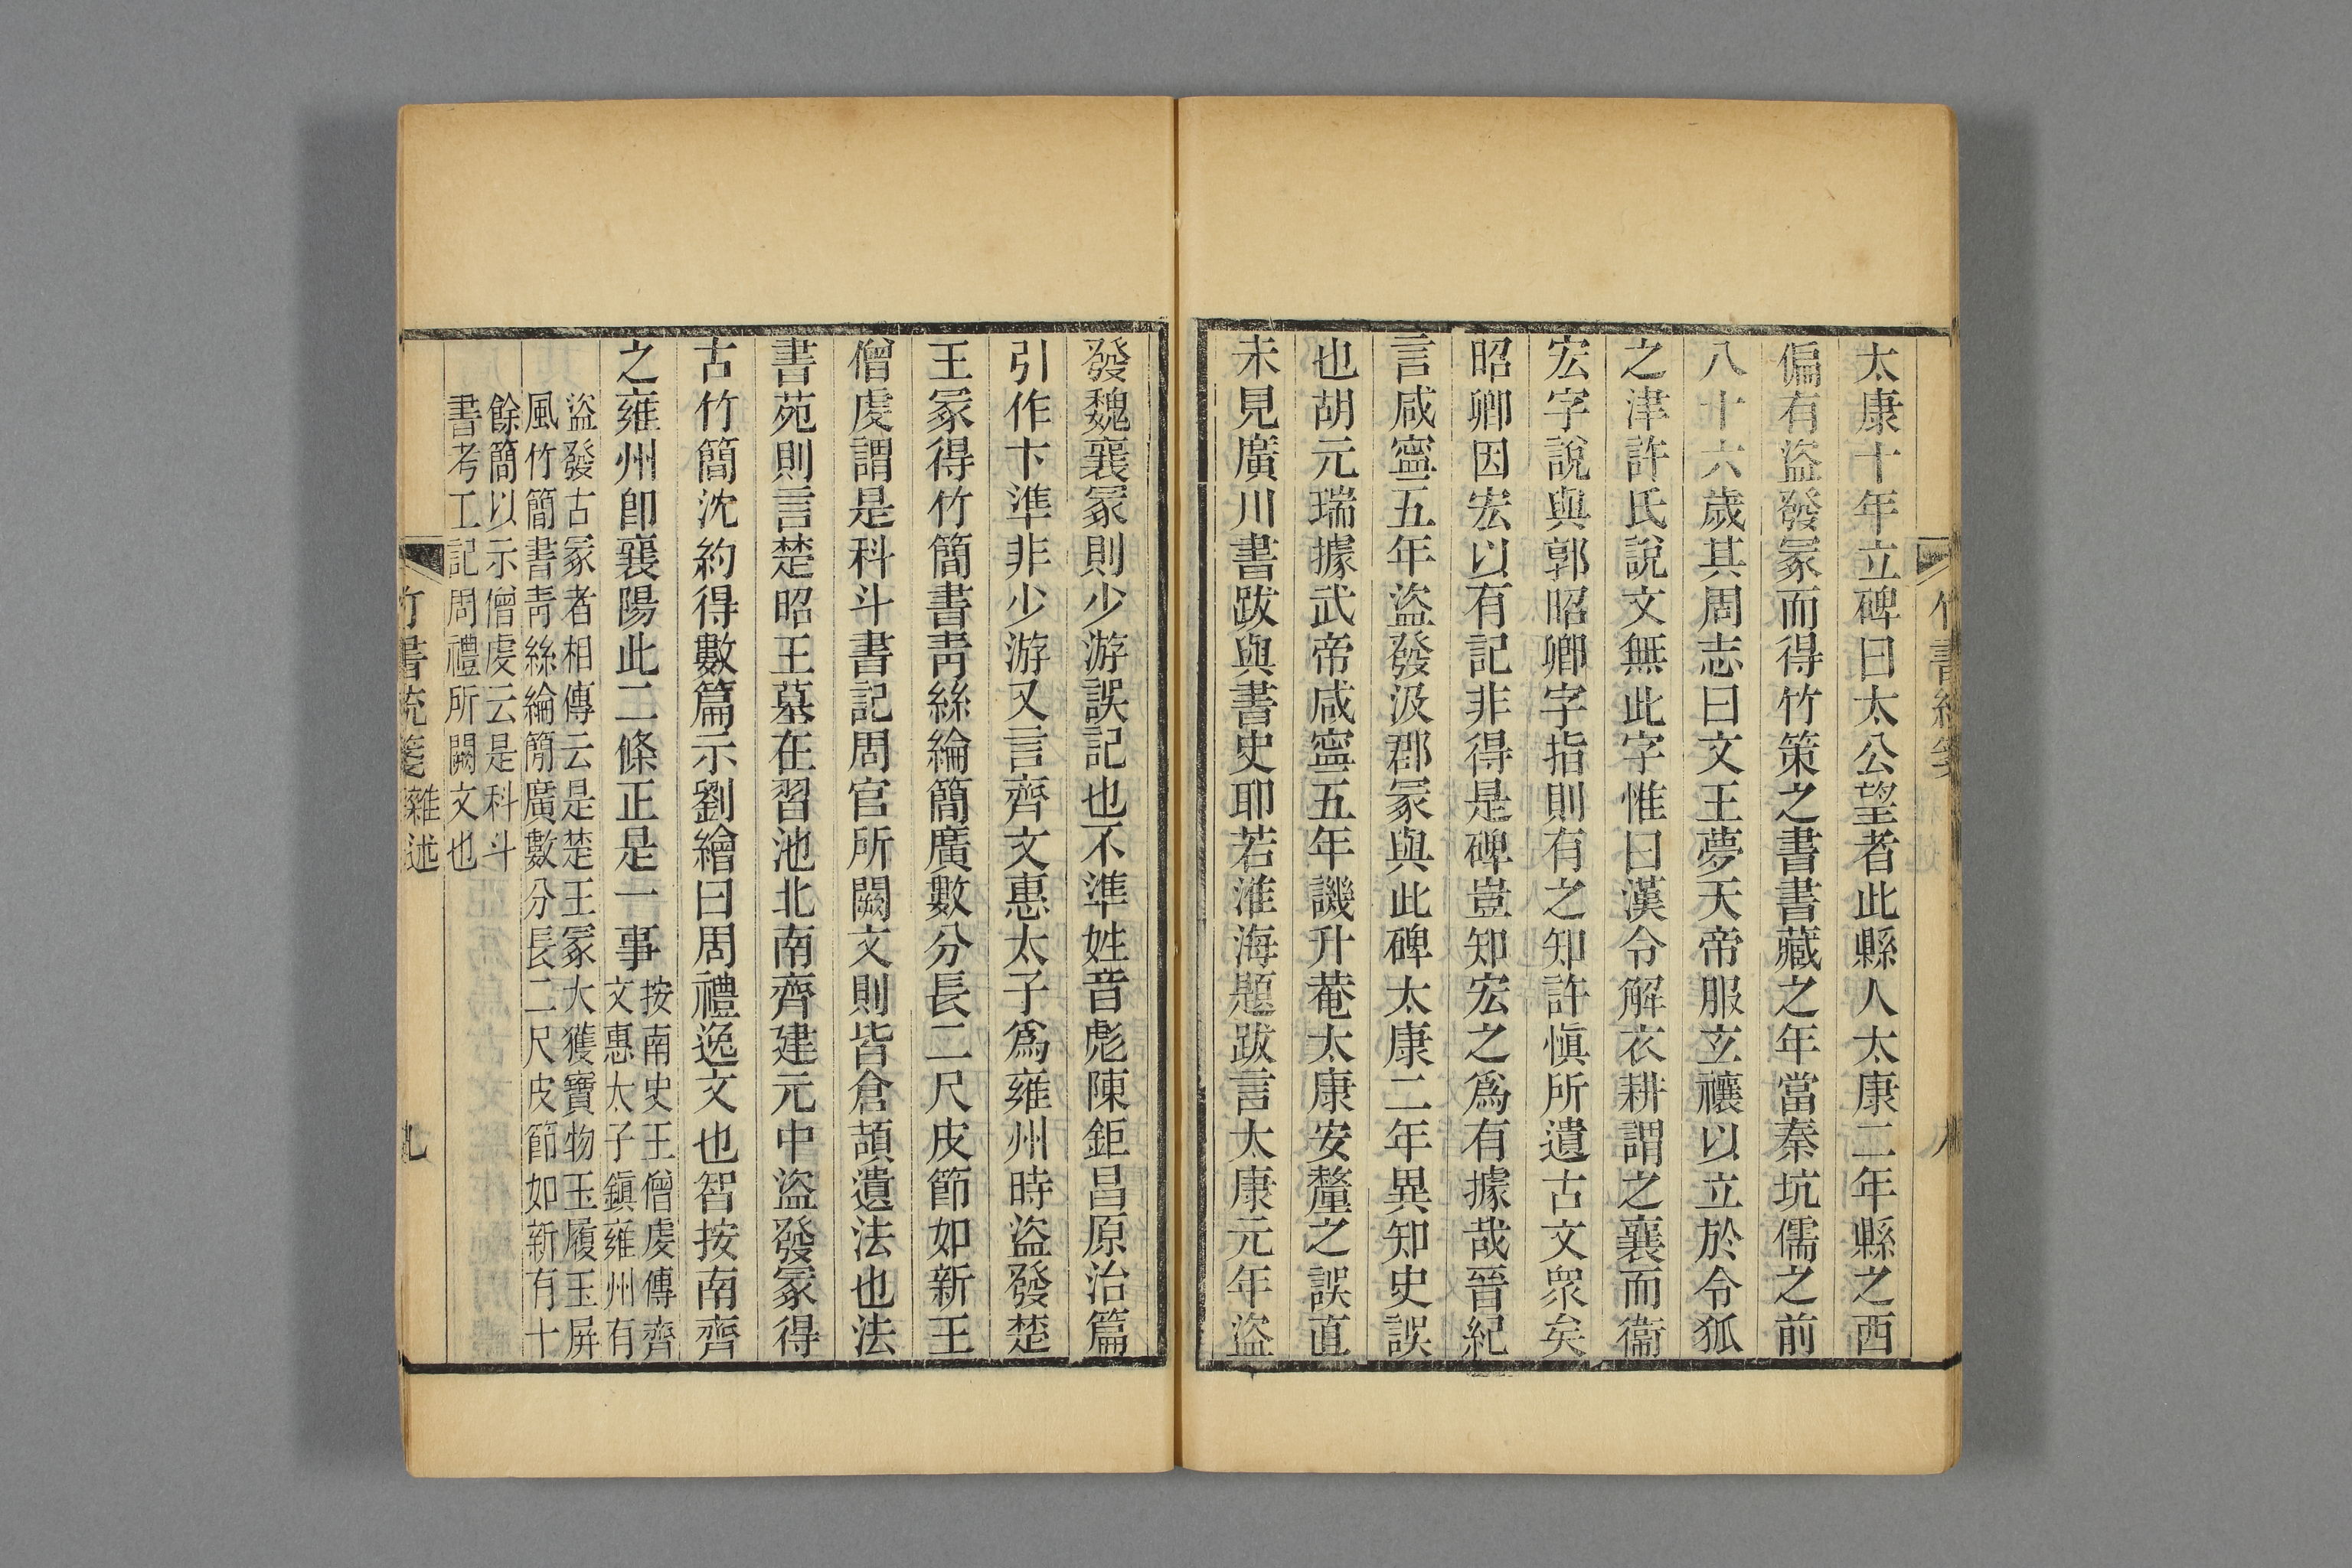 太康十年立碑曰太公望者此縣人太康二年縣之西
偏有盜發冢而得竹策之書書藏之年當秦坑儒之前
八十六歲其周志曰文王夢天帝服玄禳以立於令狐
之津許氏說文無此字惟曰漢令解衣耕謂之襄而衞
宏字說與郭昭卿字指則有之知許愼所遺古文眾矣
昭卿因宏以有記非得是碑豈知宏之爲有據哉晉紀
言咸寧五年盜發汲郡冢與此碑太康二年異知史誤
也胡元瑞據武帝咸寧五年譏升菴太康安釐之誤直
未見廣川書跋與書史耶若淮海題跋言太康元年盜
發魏襄冢則少游誤記也不準姓音彪陳鉅昌原治篇
引作卞準非少游又言齊文惠太子爲雍州時盜發楚
王冢得竹簡書靑絲綸簡廣數分長二尺皮節如新王
僧虔謂是科斗書記周官所闕文則皆倉頡遺法也法
書苑則言楚昭王墓在習池北南齊建元中盜發冢得
古竹簡沈約得數篇示劉繪曰周禮逸文也智按南齊
之雍州卽襄陽此二條正是一事
按南史王僧虔傳齊
文惠太子鎭雍州有
盜發古冢者相傳云是楚王冢大獲寶物玉履玉屏
風竹簡書靑絲綸簡廣數分長二尺皮節如新有十
餘簡以示僧虔云是科斗
書考工記周禮所闕文也
竹書統箋 雜述 九